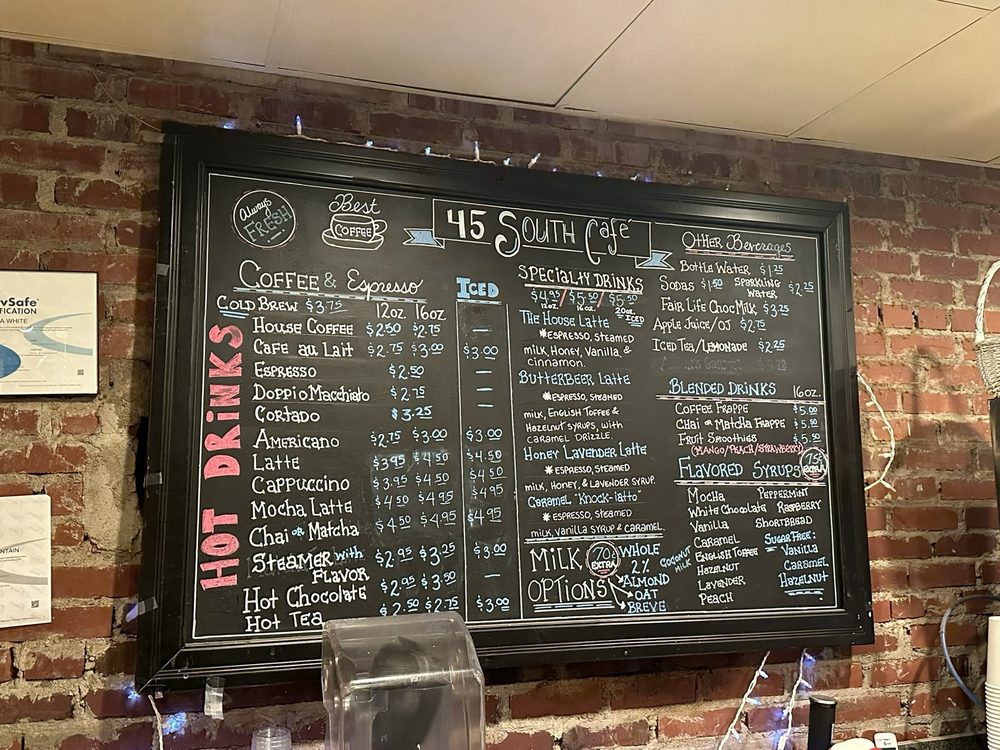 Always
FRESH
Best
COFFEE
45 South Café
Coffee & Espresso
ICED
Cold Brew $3.75 12oz 16oz.
HOT DRINKS
House Coffee $2.50 $2.75 —
Cafe au Lait $2.75 $3.00 $3.00
Espresso $2.50 —
Doppio Macchiato $2.75 —
Cortado $3.25 —
Americano $2.75 $3.00 $3.00
Latte $3.95 $4.50 $4.50
Cappuccino $3.95 $4.50 $4.50
Mocha Latte $4.50 $4.95 $4.95
Chai or Matcha $4.50 $4.95 $4.95
Steamer with Flavor $2.95 $3.25 $3.00
Hot Chocolate $2.95 $3.50 —
Hot Tea $2.50 $2.75 $3.00
Specialty Drinks
$4.95/$5.50/$5.50
12oz. 16oz. 20oz. ICED
The House Latte
*Espresso, steamed
milk, Honey, Vanilla &
cinnamon.
Butterbeer Latte
*Espresso, steamed
milk, English Toffee &
Hazelnut syrups, with
caramel drizzle.
Honey Lavender Latte
*Espresso, steamed
milk, Honey, & Lavender syrup.
Caramel "Knock-iatto"
*Espresso, steamed
milk, vanilla syrup & caramel.
Milk Options
70¢ EXTRA
Whole
2%
Almond
Oat
Breve
Coconut Milk
Other Beverages
Bottle Water $1.25
Sodas $1.50 Sparkling Water $2.25
Fair Life Choc Milk $3.25
Apple Juice/OJ $2.75
Iced Tea/Lemonade $2.25
Blended Drinks 16oz.
Coffee Frappe $5.00
Chai or Matcha Frappe $5.50
Fruit Smoothies $5.50
(Mango/Peach/Strawberry)
Flavored Syrups
75¢ EXTRA
Mocha
White Chocolate
Vanilla
Caramel
English Toffee
Hazelnut
Lavender
Peach
Peppermint
Raspberry
Shortbread
Sugar Free:
Vanilla
Caramel
Hazelnut